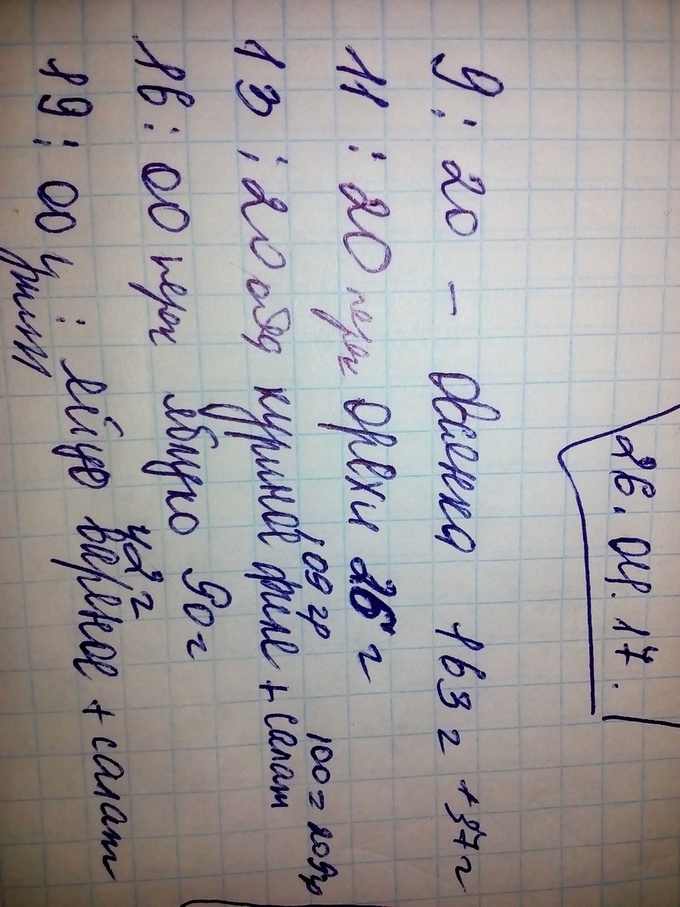 26.04.17.
9:20 - Овсянка 163 г + 37 г
11:20 перек орехи 26 г
109 гр 100 = 209гр
13:20 обед куриное филе + салат
16:00 перек яблоко 90 г
42 г
19:00 ужин: яйцо варёное + салат